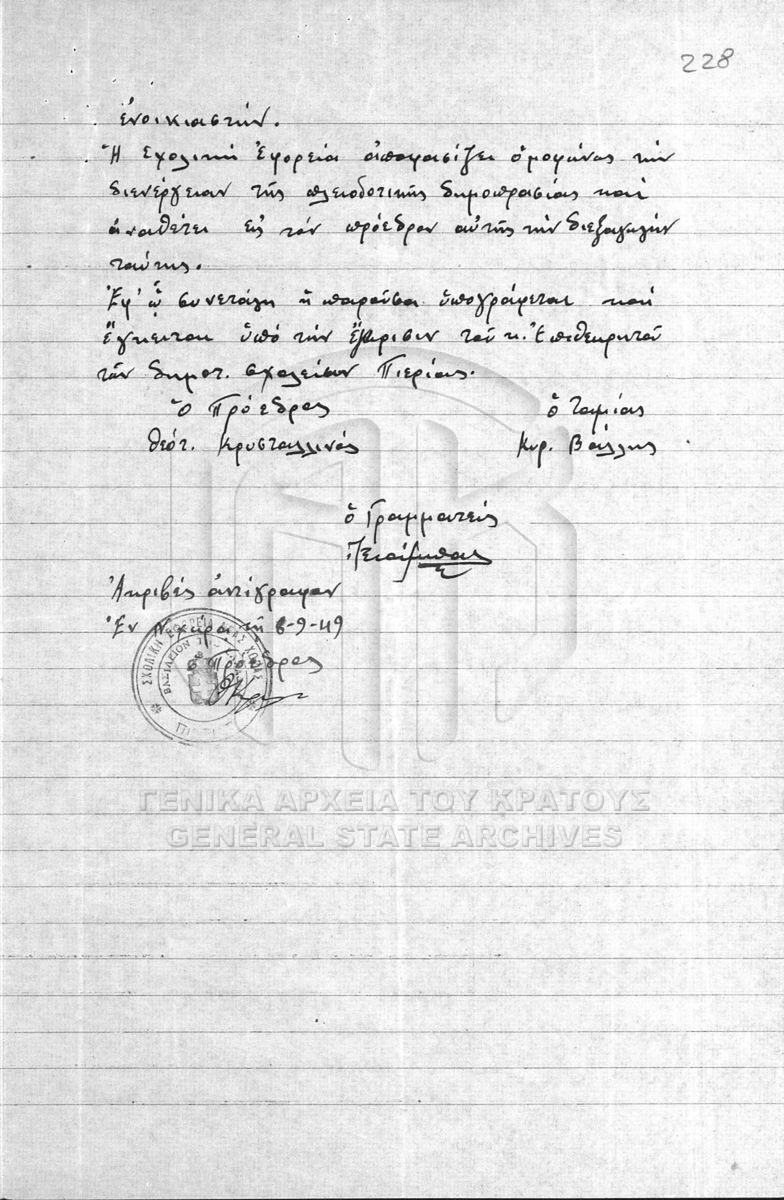 228
ἐνοικιαστήν.
Ἡ Σχολική Ἐφορεία ἀποφασίζει ὁμοφώνως τήν
διενέργειαν τῆς πλειοδοτικῆς δημοπρασίας καί
ἀναθέτει εἰς τόν πρόεδρον αὐτῆς τήν διεξαγωγήν
ταύτης.
Ἐφ' ᾧ συνετάγη ἡ παροῦσα ὑπογράφεται καί
ἔγκειται ὑπό τήν ἔγκρισιν τοῦ κ. Ἐπιθεωρητοῦ
τῶν δημοτ. σχολείων Πιερίας.
Ὁ Πρόεδρος ὁ ταμίας
Θεότ. Κρυσταλλινός Κυρ. Βάλλης
ὁ Γραμματεύς
Ἀκριβές ἀντίγραφον
Ἐν Ν. Χώρᾳ τῇ 8-9-49
ὁ Πρόεδρος
ΣΧΟΛΙΚΗ ΕΦΟΡΕΙΑ ΝΕΑΣ ΧΩΡΑΣ
ΒΑΣΙΛΕΙΟΝ
ΓΕΝΙΚΑ ΑΡΧΕΙΑ ΤΟΥ ΚΡΑΤΟΥΣ
GENERAL STATE ARCHIVES